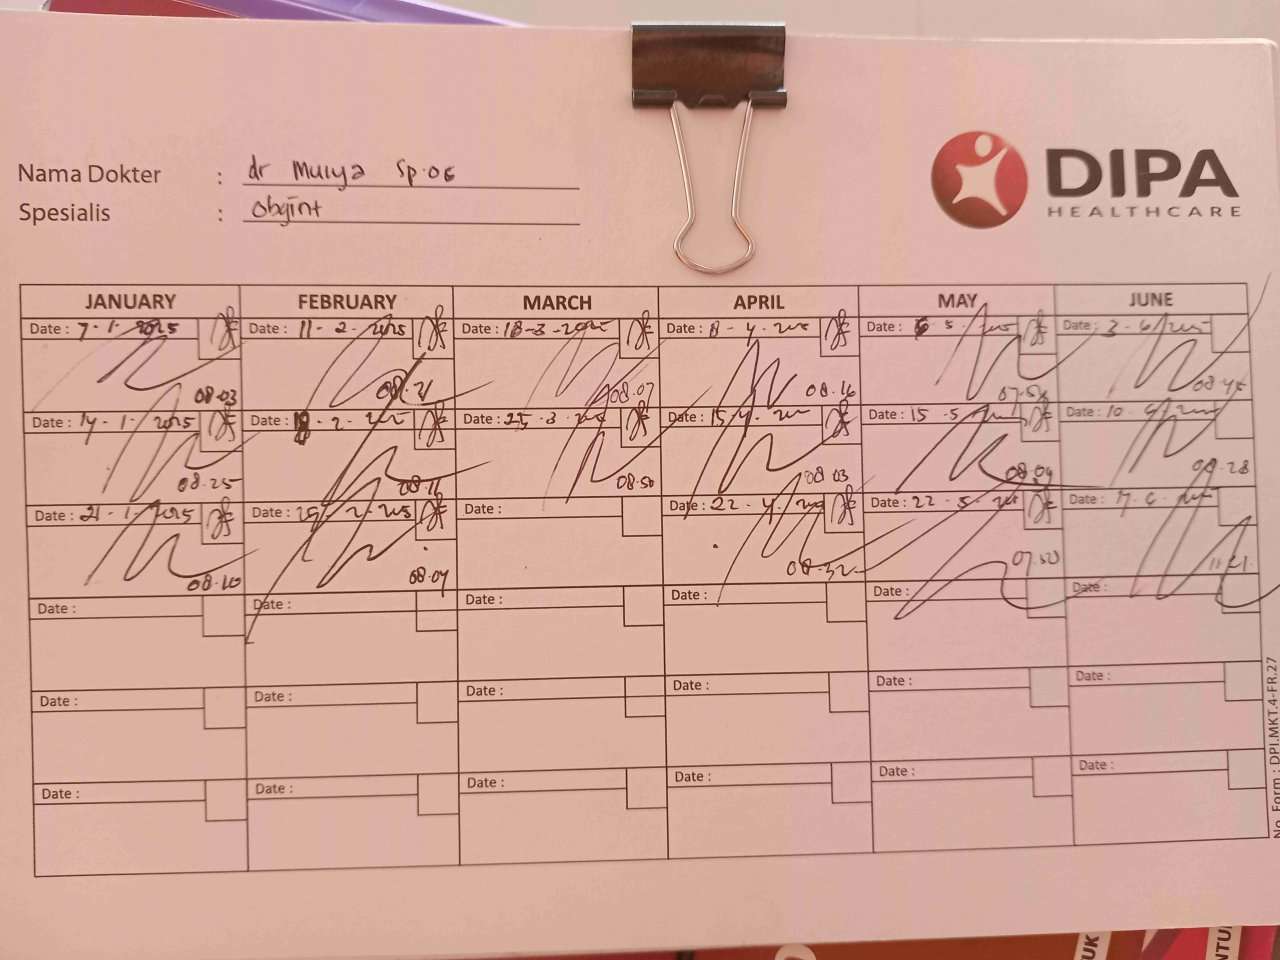 Nama Dokter : dr Mulya Sp.OG
Spesialis : Obgint
DIPA
HEALTHCARE
JANUARY FEBRUARY MARCH APRIL MAY JUNE
Date : 7-1-2025 Date : 11-2-2025 Date : 18-3-2025 Date : 8-4-2025 Date : 6-5-2025 Date : 3-6-2025
08.03 08.21 08.07 08.16 07.54 08.45
Date : 14-1-2025 Date : 18-2-2025 Date : 25-3-2025 Date : 15-4-2025 Date : 15-5- Date : 10-6-2025
08.25 08.11 08.50 08.03 08.04 08.28
Date : 21-1-2025 Date : 25-2-2025 Date : Date : 22-4-2025 Date : 22-5-2025 Date : 17-6-2025
08.10 08.04 08.32 07.50 11.21
Date : Date : Date : Date : Date : Date :
Date : Date : Date : Date : Date : Date :
Date : Date : Date : Date : Date : Date :
No. Form : DPI.MKT.4-FR.27
UK
NTU